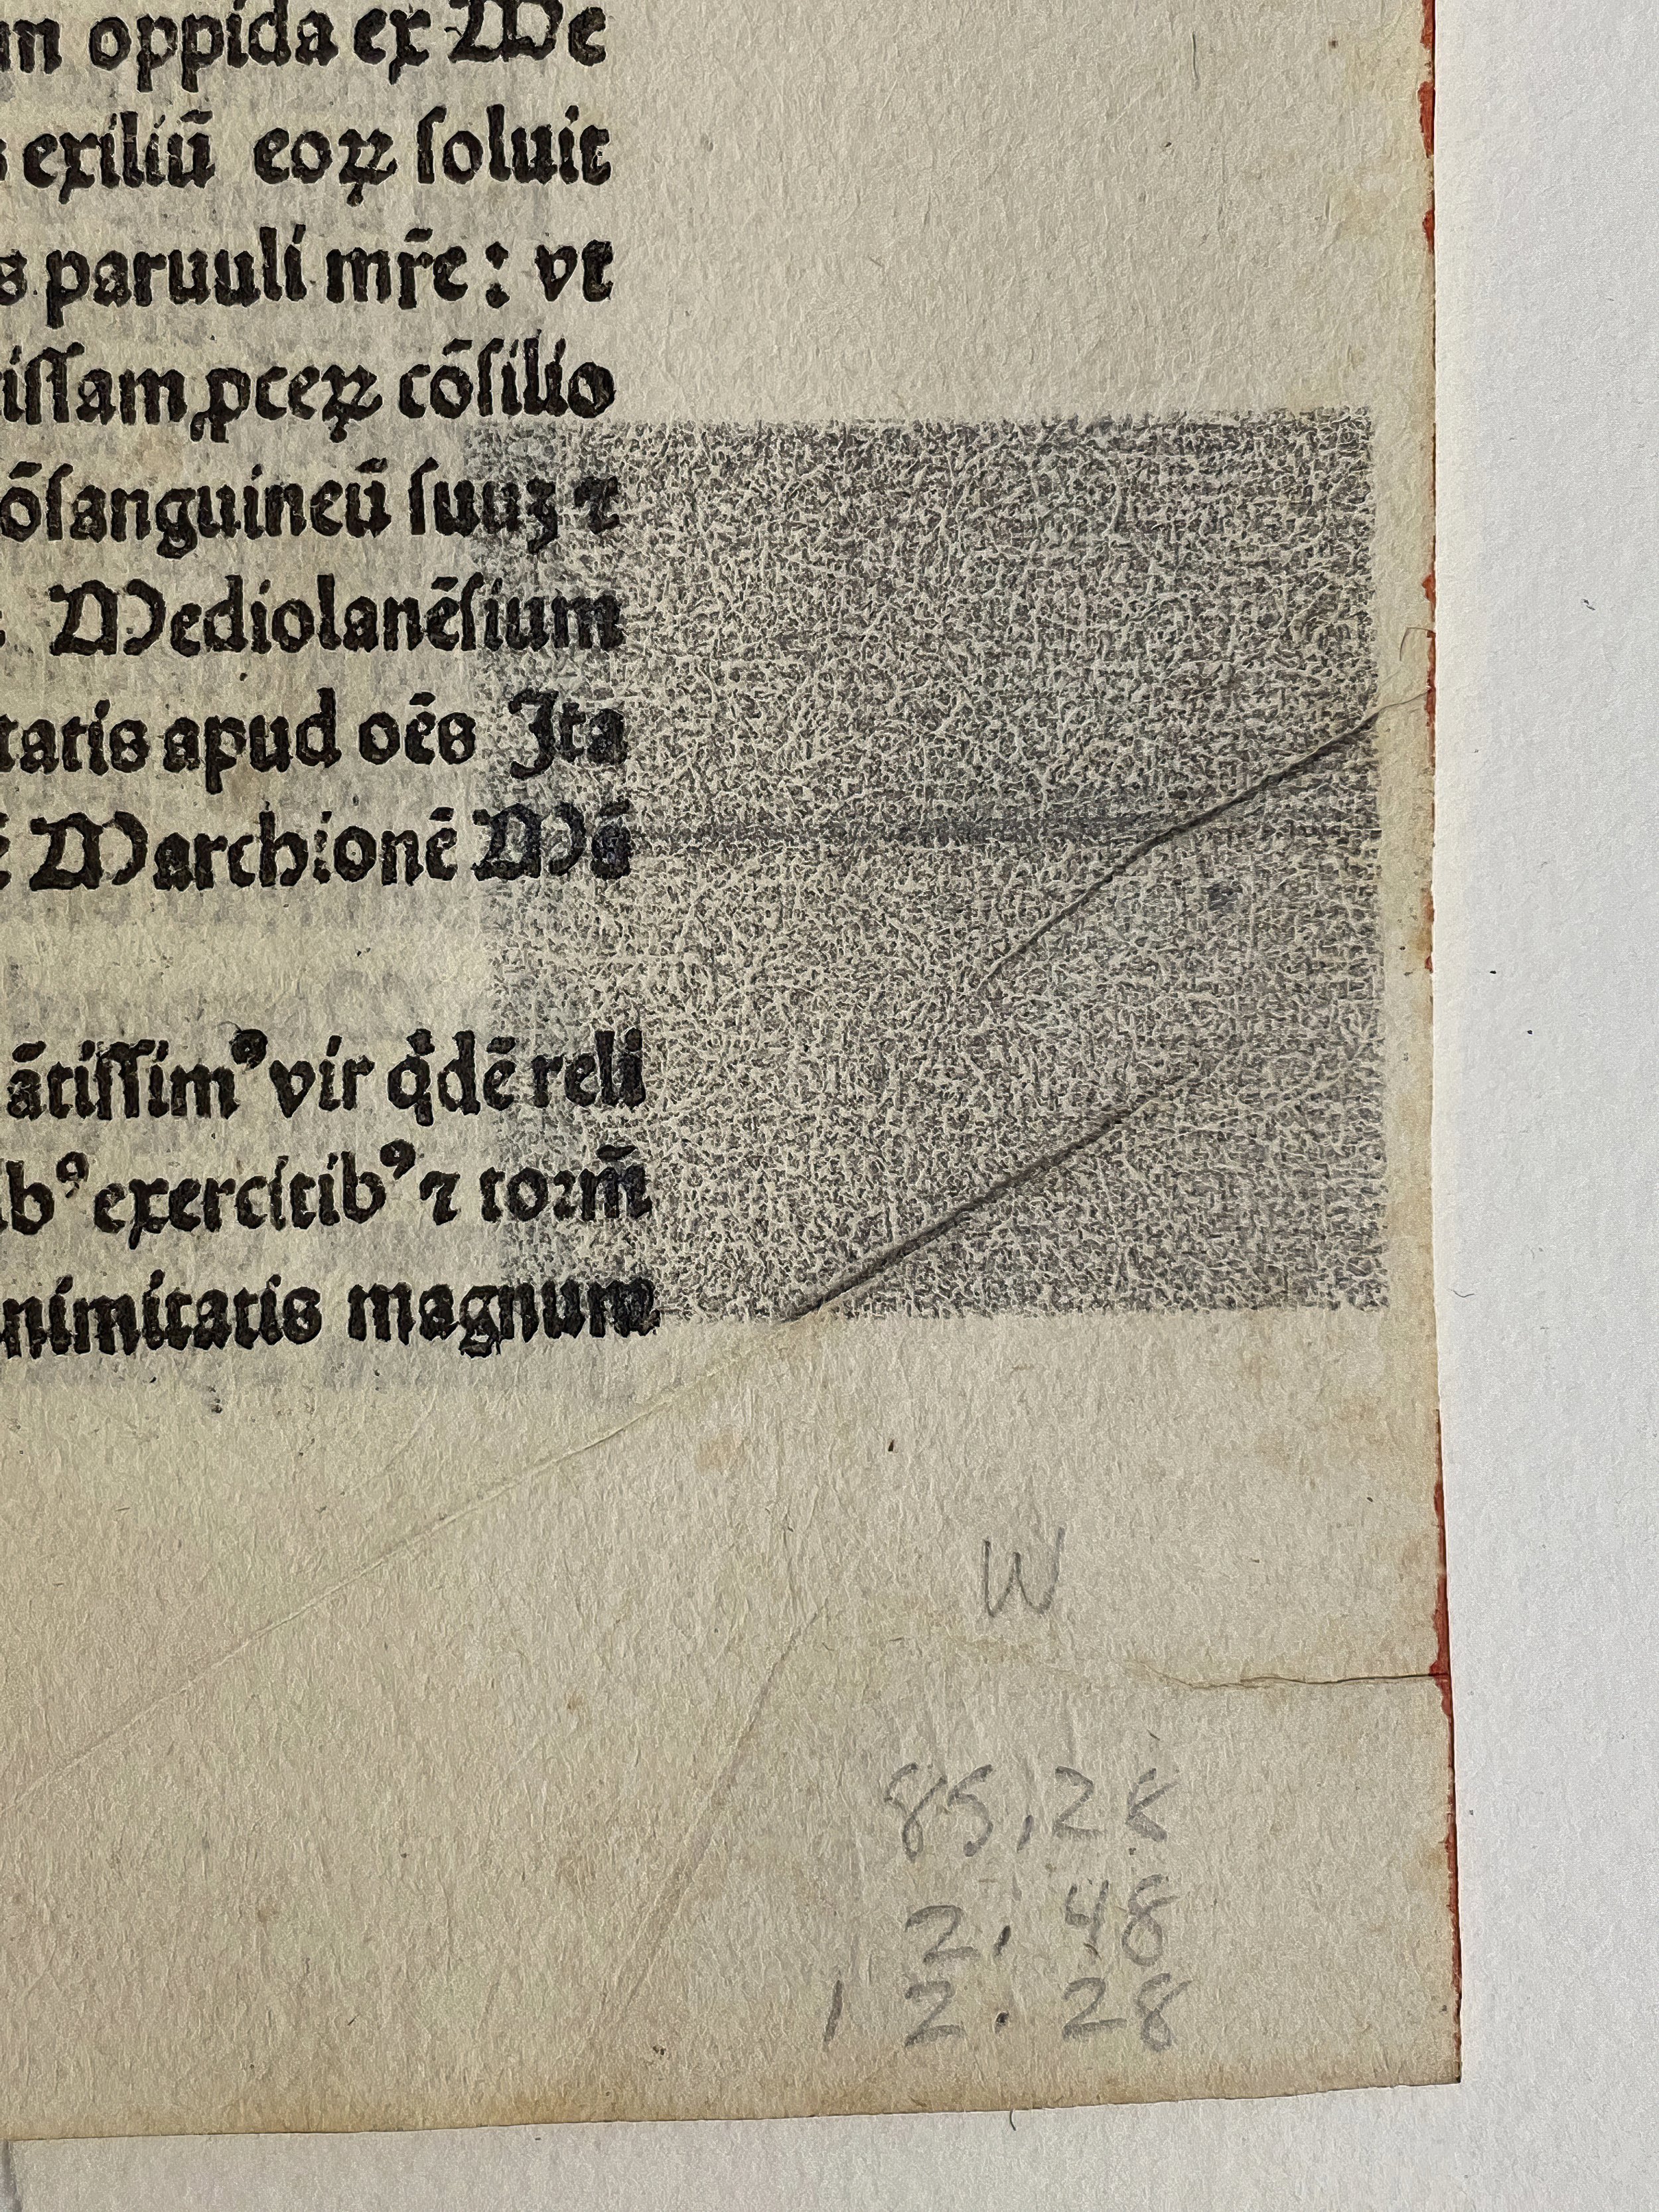 oppida ex Me
exiliū eoꝝ soluit
s paruuli mr̄e : vt
issam ꝓceꝝ cōsilio
ōsanguineū suuꝫ ⁊
Mediolanēsium
tatis apud oēs Ita
Marchionē Mō
ātissimꝰ vir qͥdē reli
ibꝰ exercitibꝰ ⁊ torm̄
nimitatis magnum
W
85,28
2. 48
1 2. 28